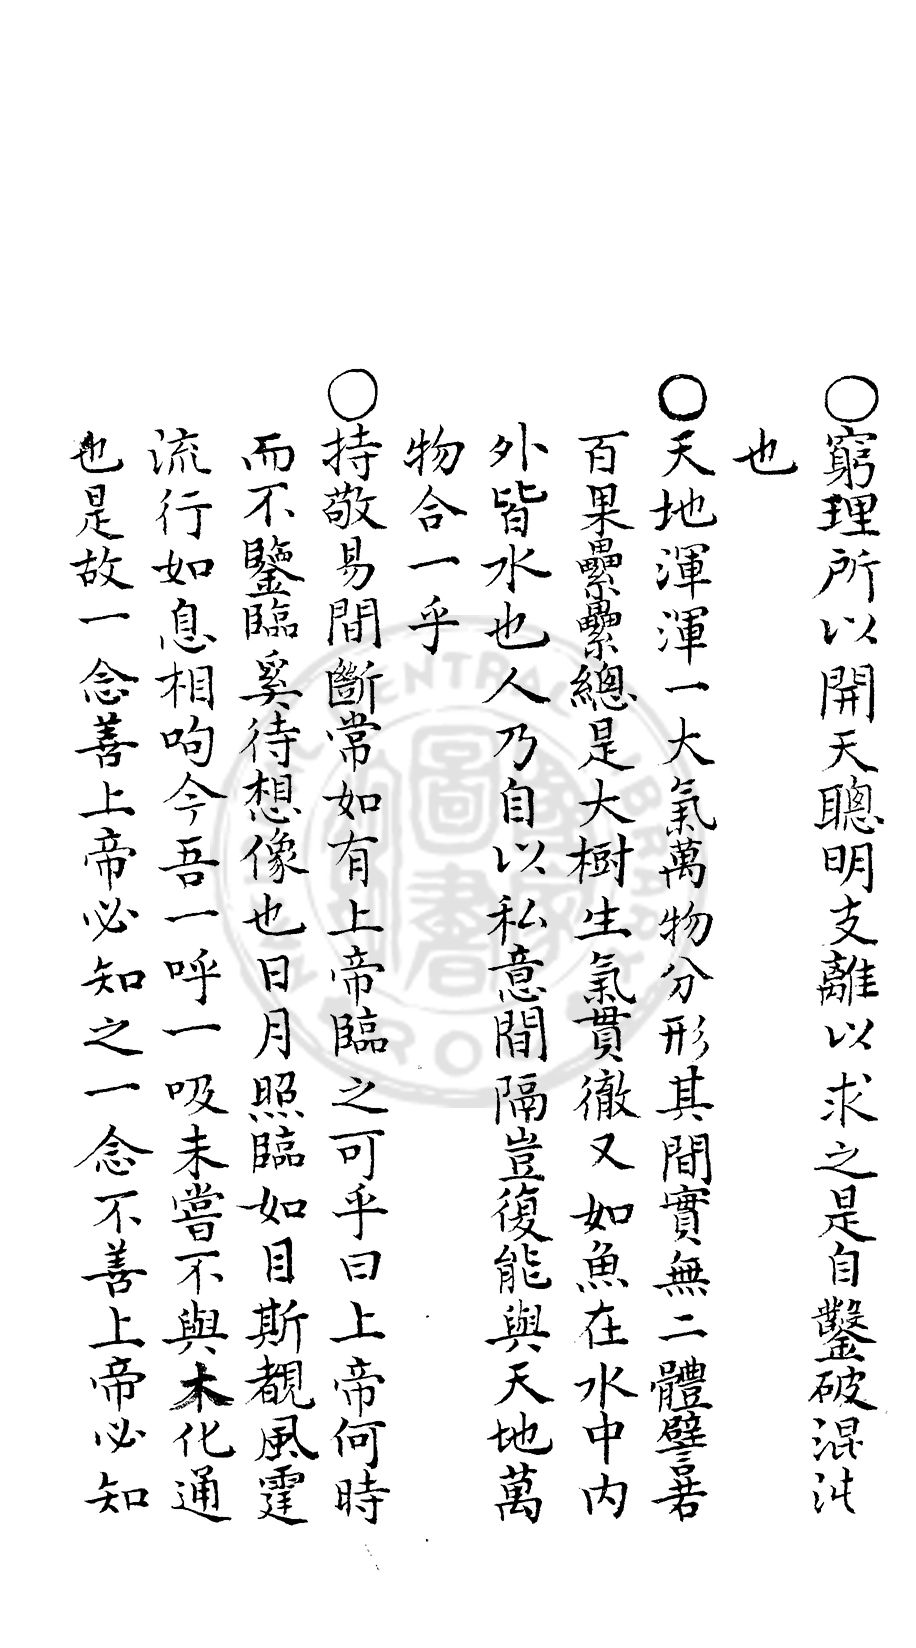 ○窮理所以開天聰明支離以求之是自鑿破混沌
也
○天地渾渾一大氣萬物分形其間實無二體譬若
百果纍纍總是大樹生氣貫徹又如魚在水中內
外皆水也人乃自以私意間隔豈復能與天地萬
物合一乎
○持敬易間斷常如有上帝臨之可乎曰上帝何時
而不鑒臨奚待想像也日月照臨如目斯覩風霆
流行如息相呴今吾一呼一吸未嘗不與大化通
也是故一念善上帝必知之一念不善上帝必知
CENTRAL LIBRARY
圖書